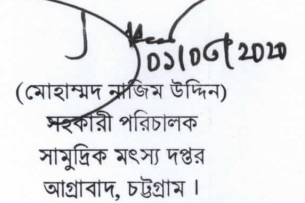 ০১/০৬/২০২০
(মোহাম্মদ নাজিম উদ্দিন)
সহকারী পরিচালক
সামুদ্রিক মৎস্য দপ্তর
আগ্রাবাদ, চট্টগ্রাম ।